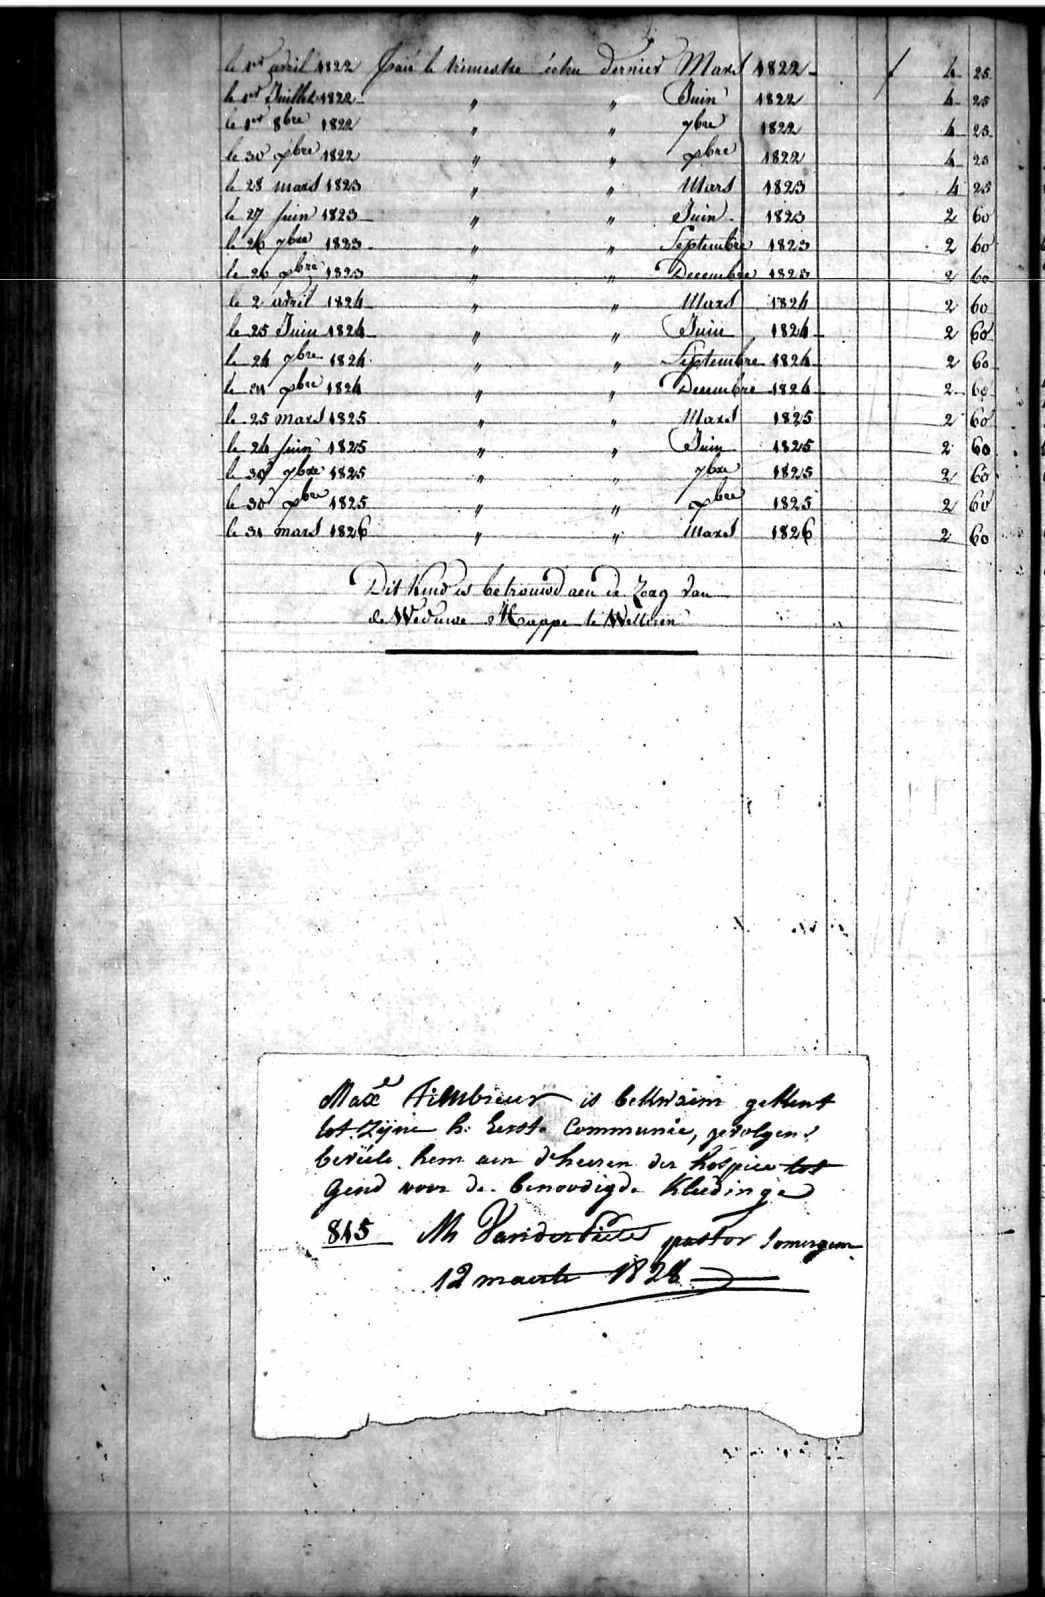 le 1er avril 1822 Païé le trimestre échu dernier Mars 1822 f 4 25
le 1er Juillet 1822 " " Juin 1822 4 25
le 1er 8bre 1822 " " 7bre 1822 4 25
le 30 xbre 1822 " " xbre 1822 4 25
le 28 mars 1823 " " Mars 1823 4 25
le 27 Juin 1823 " " Juin 1823 2 60
le 26 7bre 1823 " " Septembre 1823 2 60
le 26 xbre 1823 " " Decembre 1823 2 60
le 2 avril 1824 " " Mars 1824 2 60
le 25 Juin 1824 " " Juin 1824 2 60
le 24 7bre 1824 " " Septembre 1824 2 60
le 31 xbre 1824 " " Decembre 1824 2 60
le 25 mars 1825 " " Mars 1825 2 60
le 24 Juin 1825 " " Juin 1825 2 60
le 30 7bre 1825 " " 7bre 1825 2 60
le 30 xbre 1825 " " xbre 1825 2 60
le 31 mars 1826 " " Mars 1826 2 60
Dit Kind is betrouwd aen de Zorg van
de Weduwe Happe te
is bekwaim gekent
tot Zijne h. Eerste Communie, gevolgens
beviele hem aen d'heeren der hospice tot
Gend voor de benoodigde Kledinge
815 pastor Somergem
12 maerte 1828